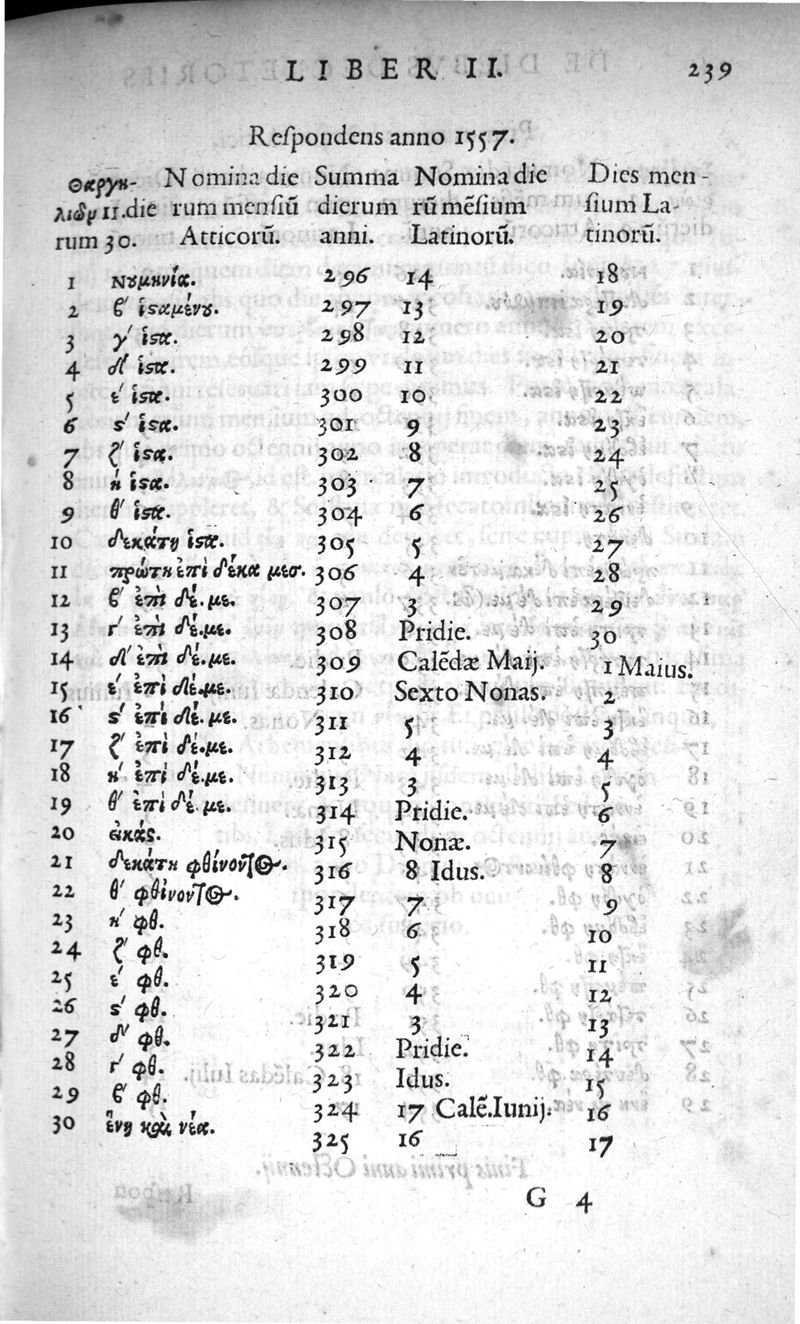 LIBER II. 239
Respondens anno 1557.
Θαργη- Nomina die Summa Nomina die Dies men-
λιῶν 11. die rum mensiũ dierum rũ mẽsium sium La-
rum 30. Atticorũ. anni. Latinorũ. tinorũ.
1 νουμηνία. 296 14 18
2 β′ ἱσταμένου. 297 13 19
3 γ′ ἱστα. 298 12 20
4 δ′ ἱστα. 299 11 21
5 ε′ ἱστα. 300 10 22
6 ϛ′ ἱστα. 301 9 23
7 ζ′ ἱστα. 302 8 24
8 η′ ἱστα. 303 7 25
9 θ′ ἱστα. 304 6 26
10 δεκάτη ἱστα. 305 5 27
11 πρώτη ἐπὶ δέκα μεσ. 306 4 28
12 β′ ἐπὶ δέ. με. 307 3 29
13 γ′ ἐπὶ δέ. με. 308 Pridie. 30
14 δ′ ἐπὶ δέ. με. 309 Calẽdæ Maij. 1 Maius.
15 ε′ ἐπὶ δέ. με. 310 Sexto Nonas. 2
16 ϛ′ ἐπὶ δέ. με. 311 5 3
17 ζ′ ἐπὶ δέ. με. 312 4 4
18 η′ ἐπὶ δέ. με. 313 3 5
19 θ′ ἐπὶ δέ. με. 314 Pridie. 6
20 εἰκάς. 315 Nonæ. 7
21 δεκάτη φθίνοντος. 316 8 Idus. 8
22 θ′ φθίνοντος. 317 7 9
23 η′ φθ. 318 6 10
24 ζ′ φθ. 319 5 11
25 ε′ φθ. 320 4 12
26 ϛ′ φθ. 321 3 13
27 δ′ φθ. 322 Pridie. 14
28 γ′ φθ. 323 Idus. 15
29 β′ φθ. 324 17 Calẽ. Iunij. 16
30 ἕνη καὶ νέα. 325 16 17
G 4